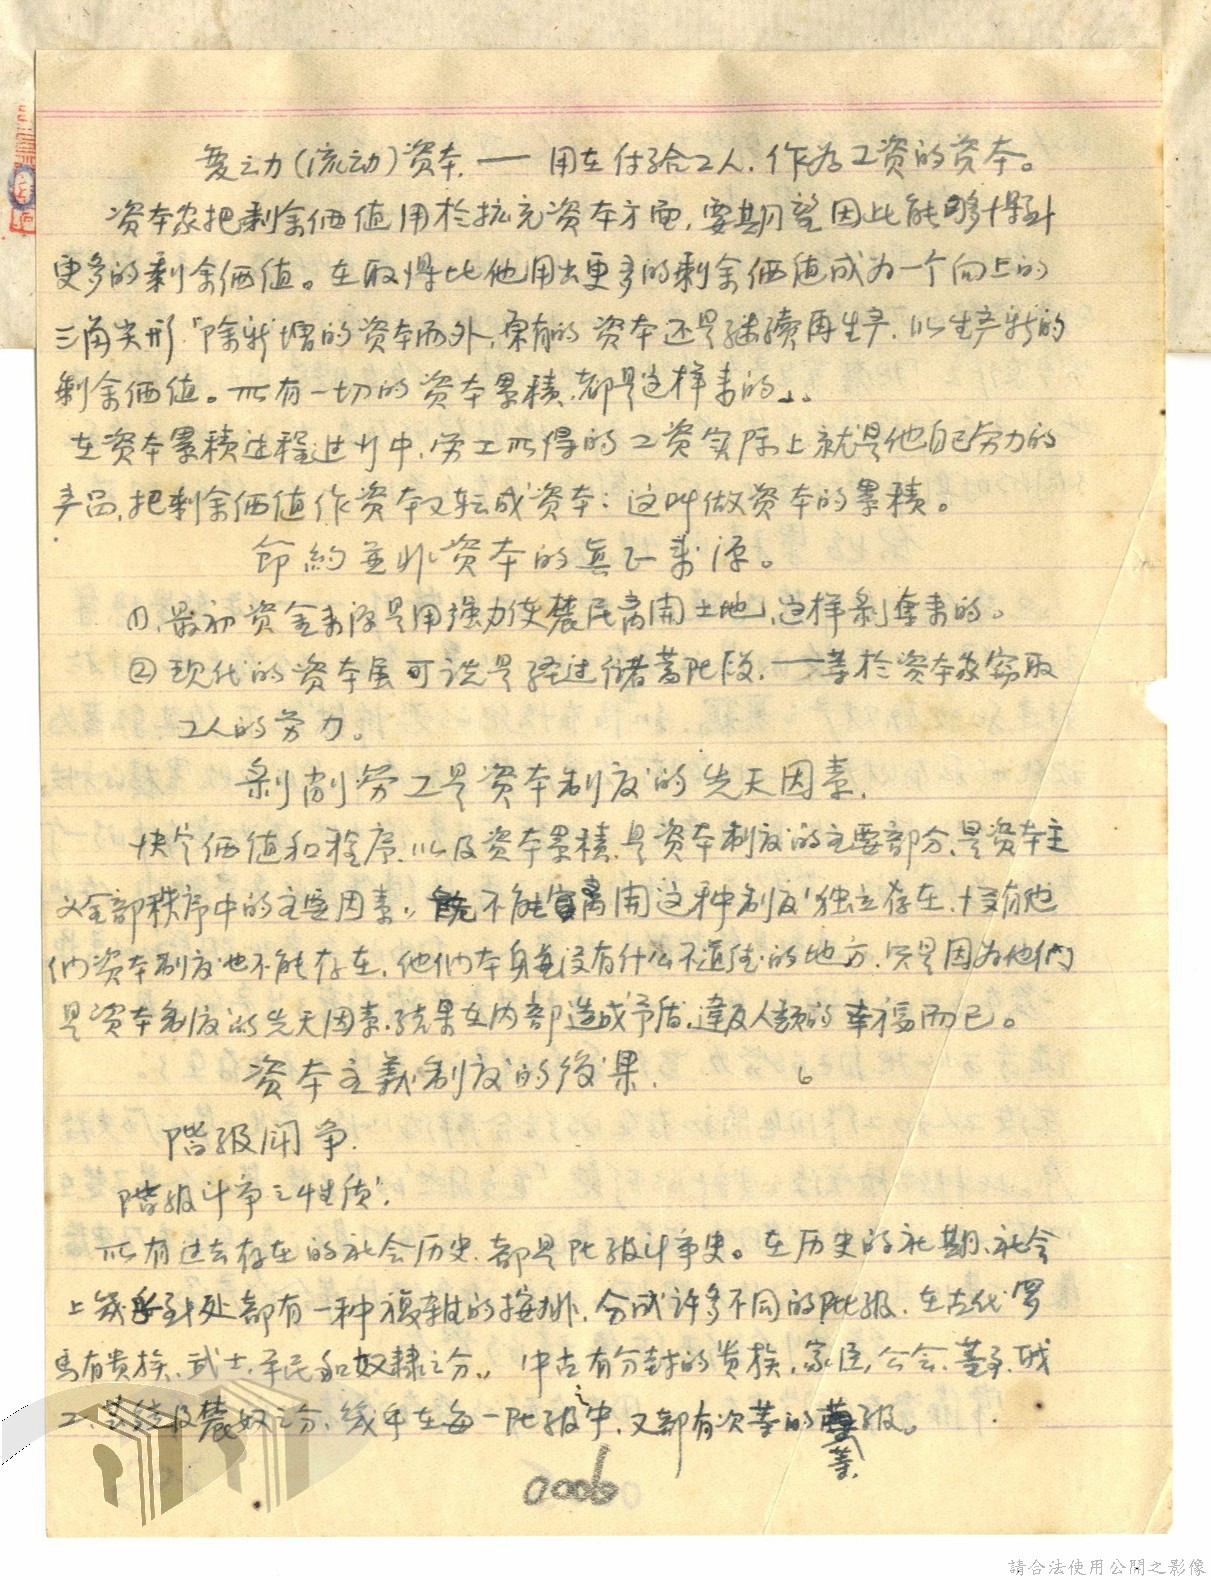 变动力(流动)资本.一 用在付给工人.作为工资的资本。
资本家把剩余価值用於扩充资本方面,要期望因此能够得到
更多的剩余価值。在取得比他用出更多的剩余価值成为一个向上的
三角尖形「除新增的资本而外,原有的资本还是继續再生产.以生产新的
剩余価值。所有一切的资本累積.都是这样来的」.
在资本累積过程进行中.劳工所得的工资实际上就是他自己劳力的
产品,把剩余価值作资本又转成资本:这叫做资本的累積。
節約並非资本的真正来源。
(1).最初资金来源是用强力使農民离開土地,这样剥奪来的。
(2)现代的资本虽可说是经过储蓄阶段.一等於资本家窃取
工人的劳力。
剥削劳工是资本制度的先天因素.
快定価值和程序.以及资本累積.是资本制度的主要部分.是资本主
义全部秩序中的主要因素.既不能离開这种制度独立存在.没有他
们资本制度也不能存在.他们本身每没有什么不道德的地方.只是因为他们
是资本制度的先天因素.结果在内部造成矛盾.違反人類的幸福而已。
资本主義制度的後果. 6
階级鬥争.
階级斗争之性质.
所有过去存在的社会历史.都是阶级斗争史。在历史的初期.社会
上幾乎到处都有一种複杂的按排.分成许多不同的阶级.在古代罗
馬有贵族.武士.平民和奴隸之分.中古有分封的贵族.家臣.公会.艺
工.及農奴之分.幾乎在每一阶级之中.又都有次等的等级。
0006
請合法使用公開之影像